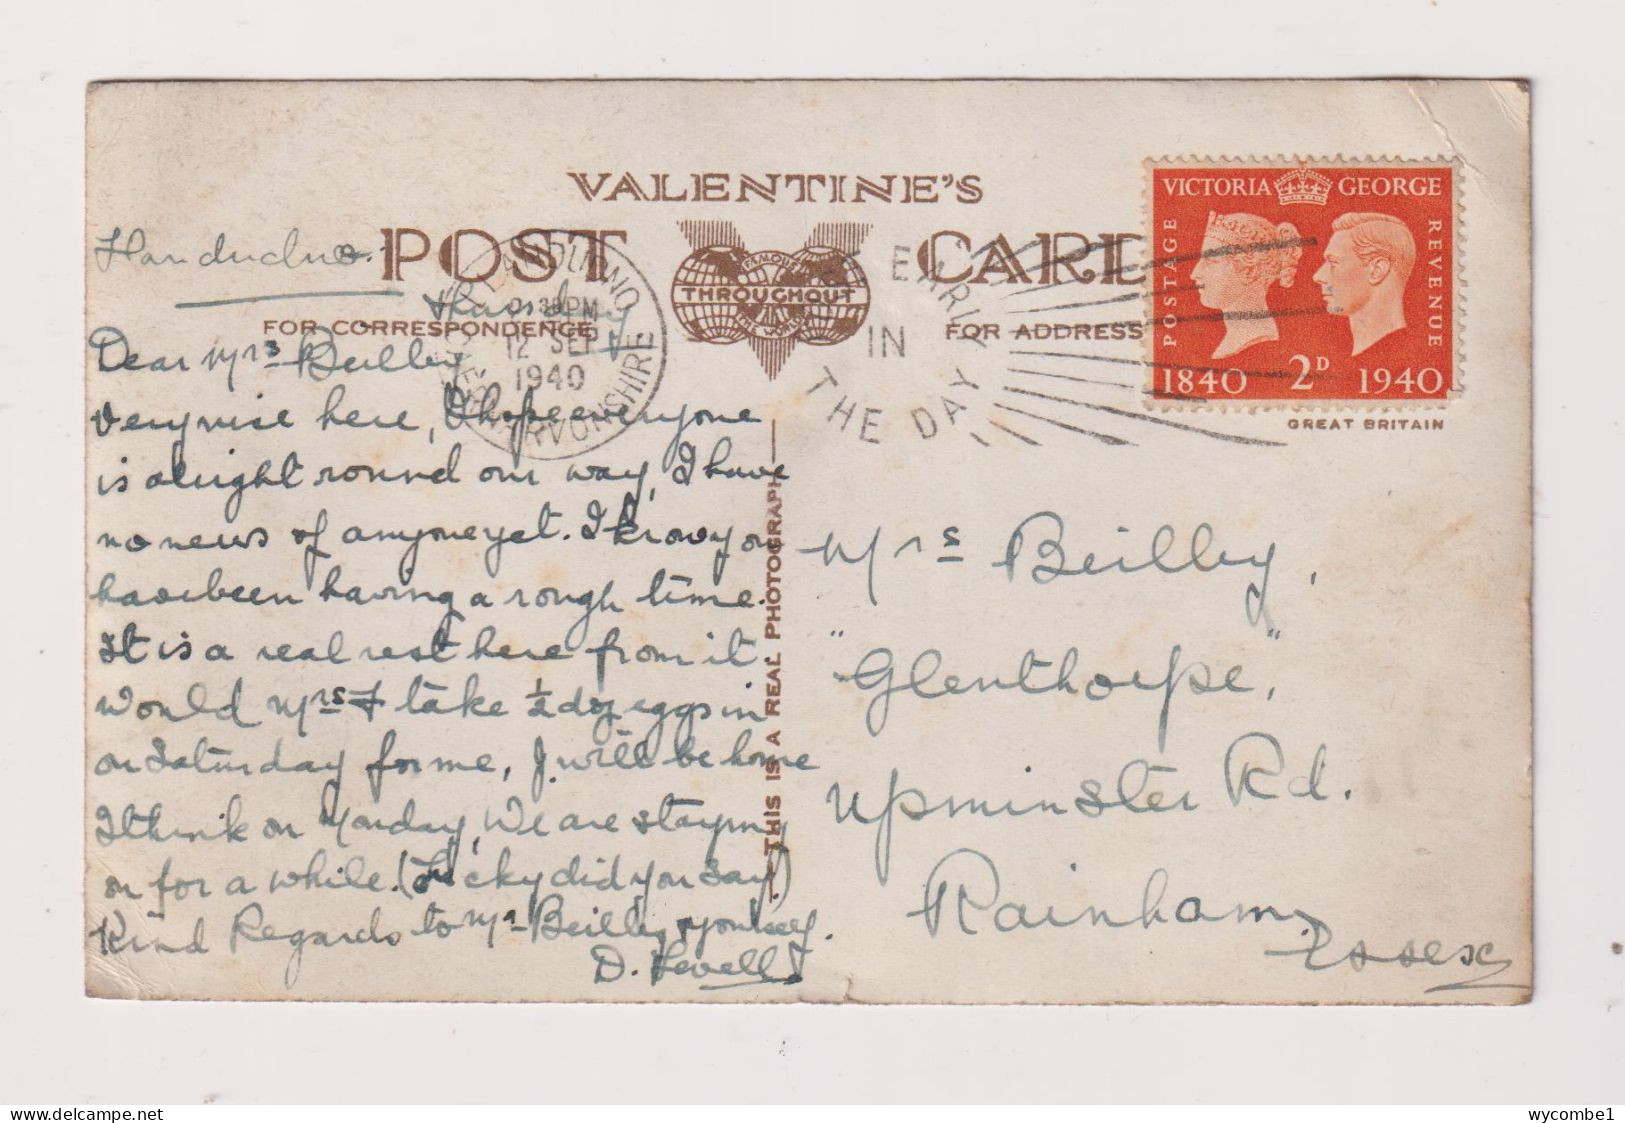 VALENTINE'S
POST CARD
FAMOUS
THROUGHOUT
THE WORLD
FOR CORRESPONDENCE
FOR ADDRESS
THIS IS A REAL PHOTOGRAPH
VICTORIA GEORGE
POSTAGE
REVENUE
1840 2D 1940
GREAT BRITAIN
LLANDUDNO
30PM
12 SEP
1940
CAERNARVONSHIRE
EARLY
IN
THE DAY
Llandudno.
Thursday
Dear Mrs Beilley
Very nice here, I hope everyone
is alright round our way, I have
no news of anyone yet. I know you
have been having a rough time.
It is a real rest here from it
Would Mrs F take ½ doz eggs in
on Saturday for me, I will be home
I think on Monday, We are staying
on for a while. (Lucky did you say)
Kind Regards to Mr Beilley & yourself.
D. Levell
Mrs Beilley,
"Glenthorpe,"
Upminster Rd.
Rainham,
Essex
wycombe1